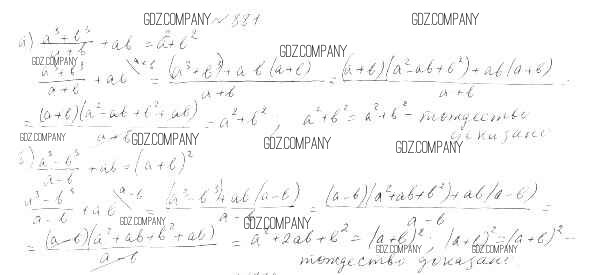 GDZ.COMPANY №881 GDZ.COMPANY
а) (a³+b³)/(a+b) + ab = a²+b²
GDZ.COMPANY GDZ.COMPANY
(a³+b³)/(a+b) + ab \a+b = ((a³+b³)+ab(a+b))/(a+b) = ((a+b)(a²-ab+b²)+ab(a+b))/(a+b) =
= ((a+b)(a²-ab+b²+ab))/(a+b) = a²+b²; a²+b²=a²+b² - тождество
GDZ.COMPANY GDZ.COMPANY GDZ.COMPANY GDZ.COMPANY доказано
б) (a³-b³)/(a-b) + ab = (a+b)²
(a³-b³)/(a-b) + ab \a-b = ((a³-b³)+ab(a-b))/(a-b) = ((a-b)(a²+ab+b²)+ab(a-b))/(a-b) =
GDZ.COMPANY GDZ.COMPANY
= ((a-b)(a²+ab+b²+ab))/(a-b) = a²+2ab+b² = (a+b)², (a+b)²=(a+b)² -
GDZ.COMPANY GDZ.COMPANY
тождество доказано.